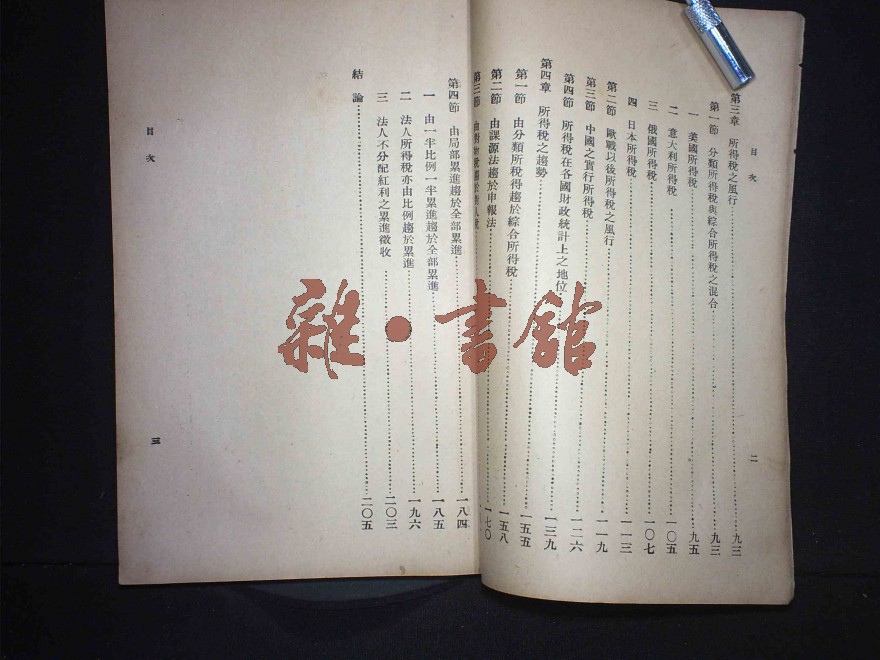 目次
二
第三章 所得稅之風行……九三
第一節 分類所得稅與綜合所得稅之混合……九三
一 美國所得稅……九五
二 意大利所得稅……一〇五
三 俄國所得稅……一〇七
四 日本所得稅……一一三
第二節 歐戰以後所得稅之風行……一一九
第三節 中國之實行所得稅……一二六
第四節 所得稅在各國財政統計上之地位……一三九
第四章 所得稅之趨勢……一五五
第一節 由分類所得稅得趨於綜合所得稅……一五八
第二節 由課源法趨於申報法……一七〇
第三節 由對物稅趨於對人稅
第四節 由局部累進趨於全部累進……一八四
一 由一半比例一半累進趨於全部累進……一八五
二 法人所得稅亦由比例趨於累進……一九六
三 法人不分配紅利之累進徵收……二〇三
結論……二〇五
目次
三
雜·書館